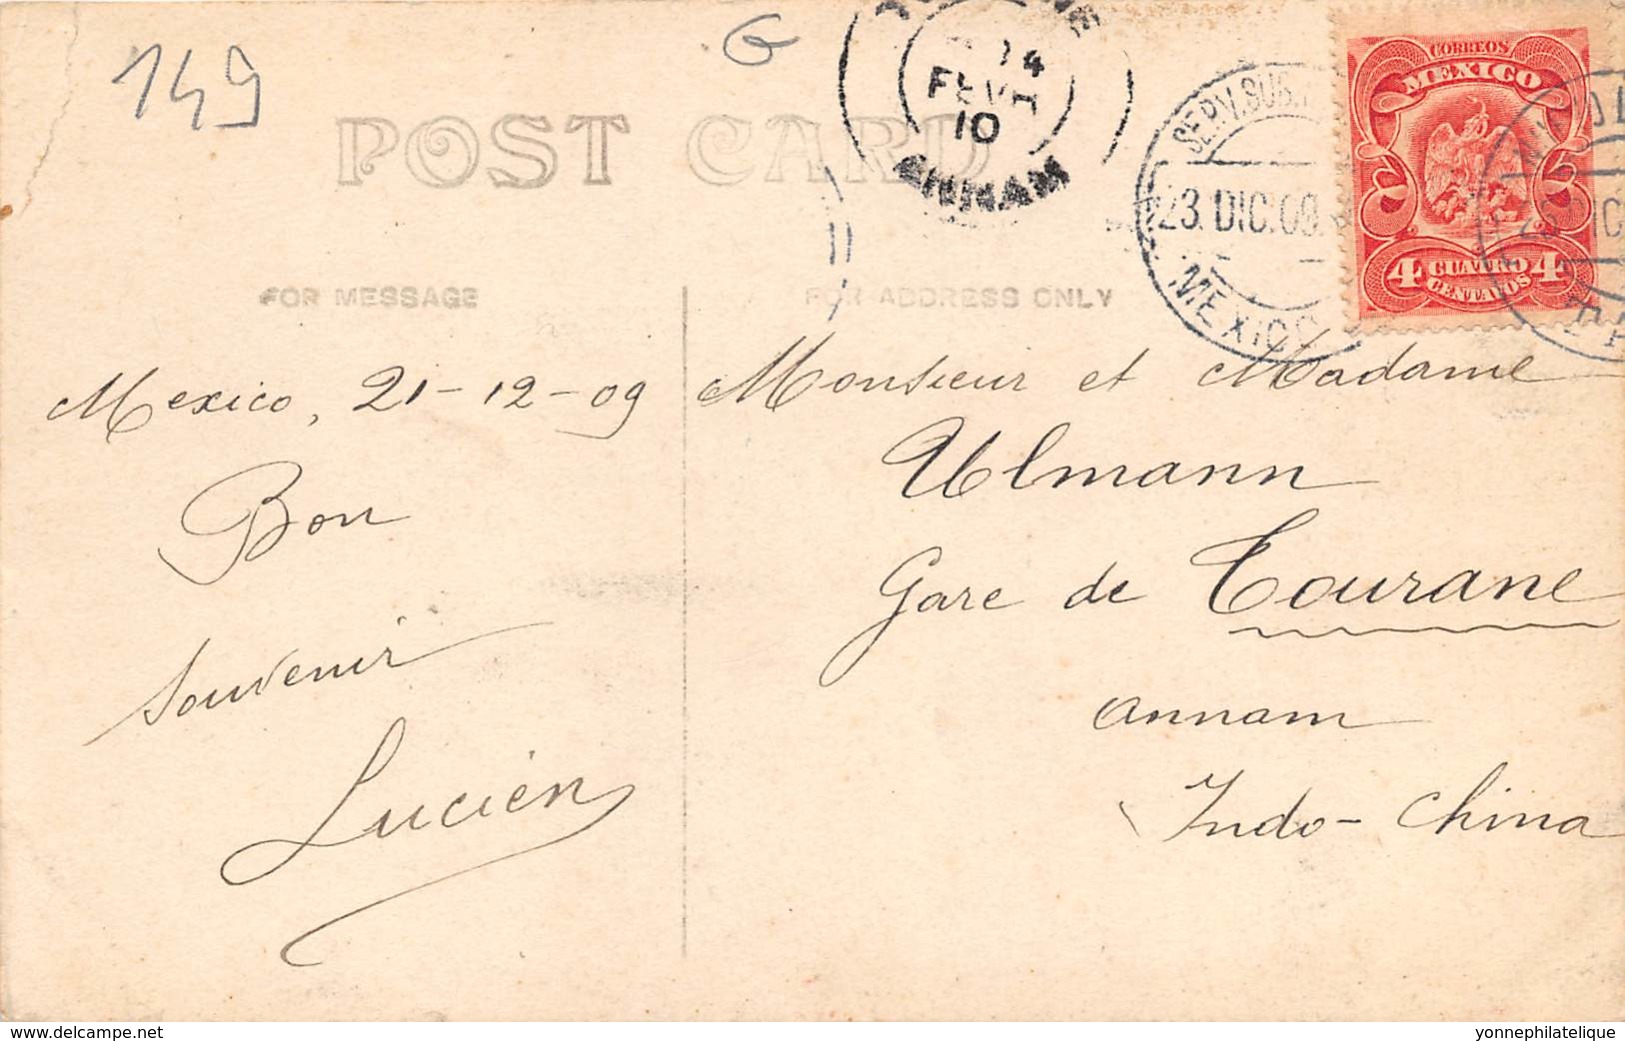 149
G
POST CARD
14
FEVR
10
ANNAM
SERV. SUB.
23. DIC. 09.
MEXICO
CORREOS
MEXICO
4 CUATRO 4
CENTAVOS
FOR MESSAGE
FOR ADDRESS ONLY
Mexico, 21-12-09
Bon
souvenir
Lucien
Monsieur et Madame
Ulmann
Gare de Tourane
Annam
Indo-China
www.delcampe.net
yonnephilatelique